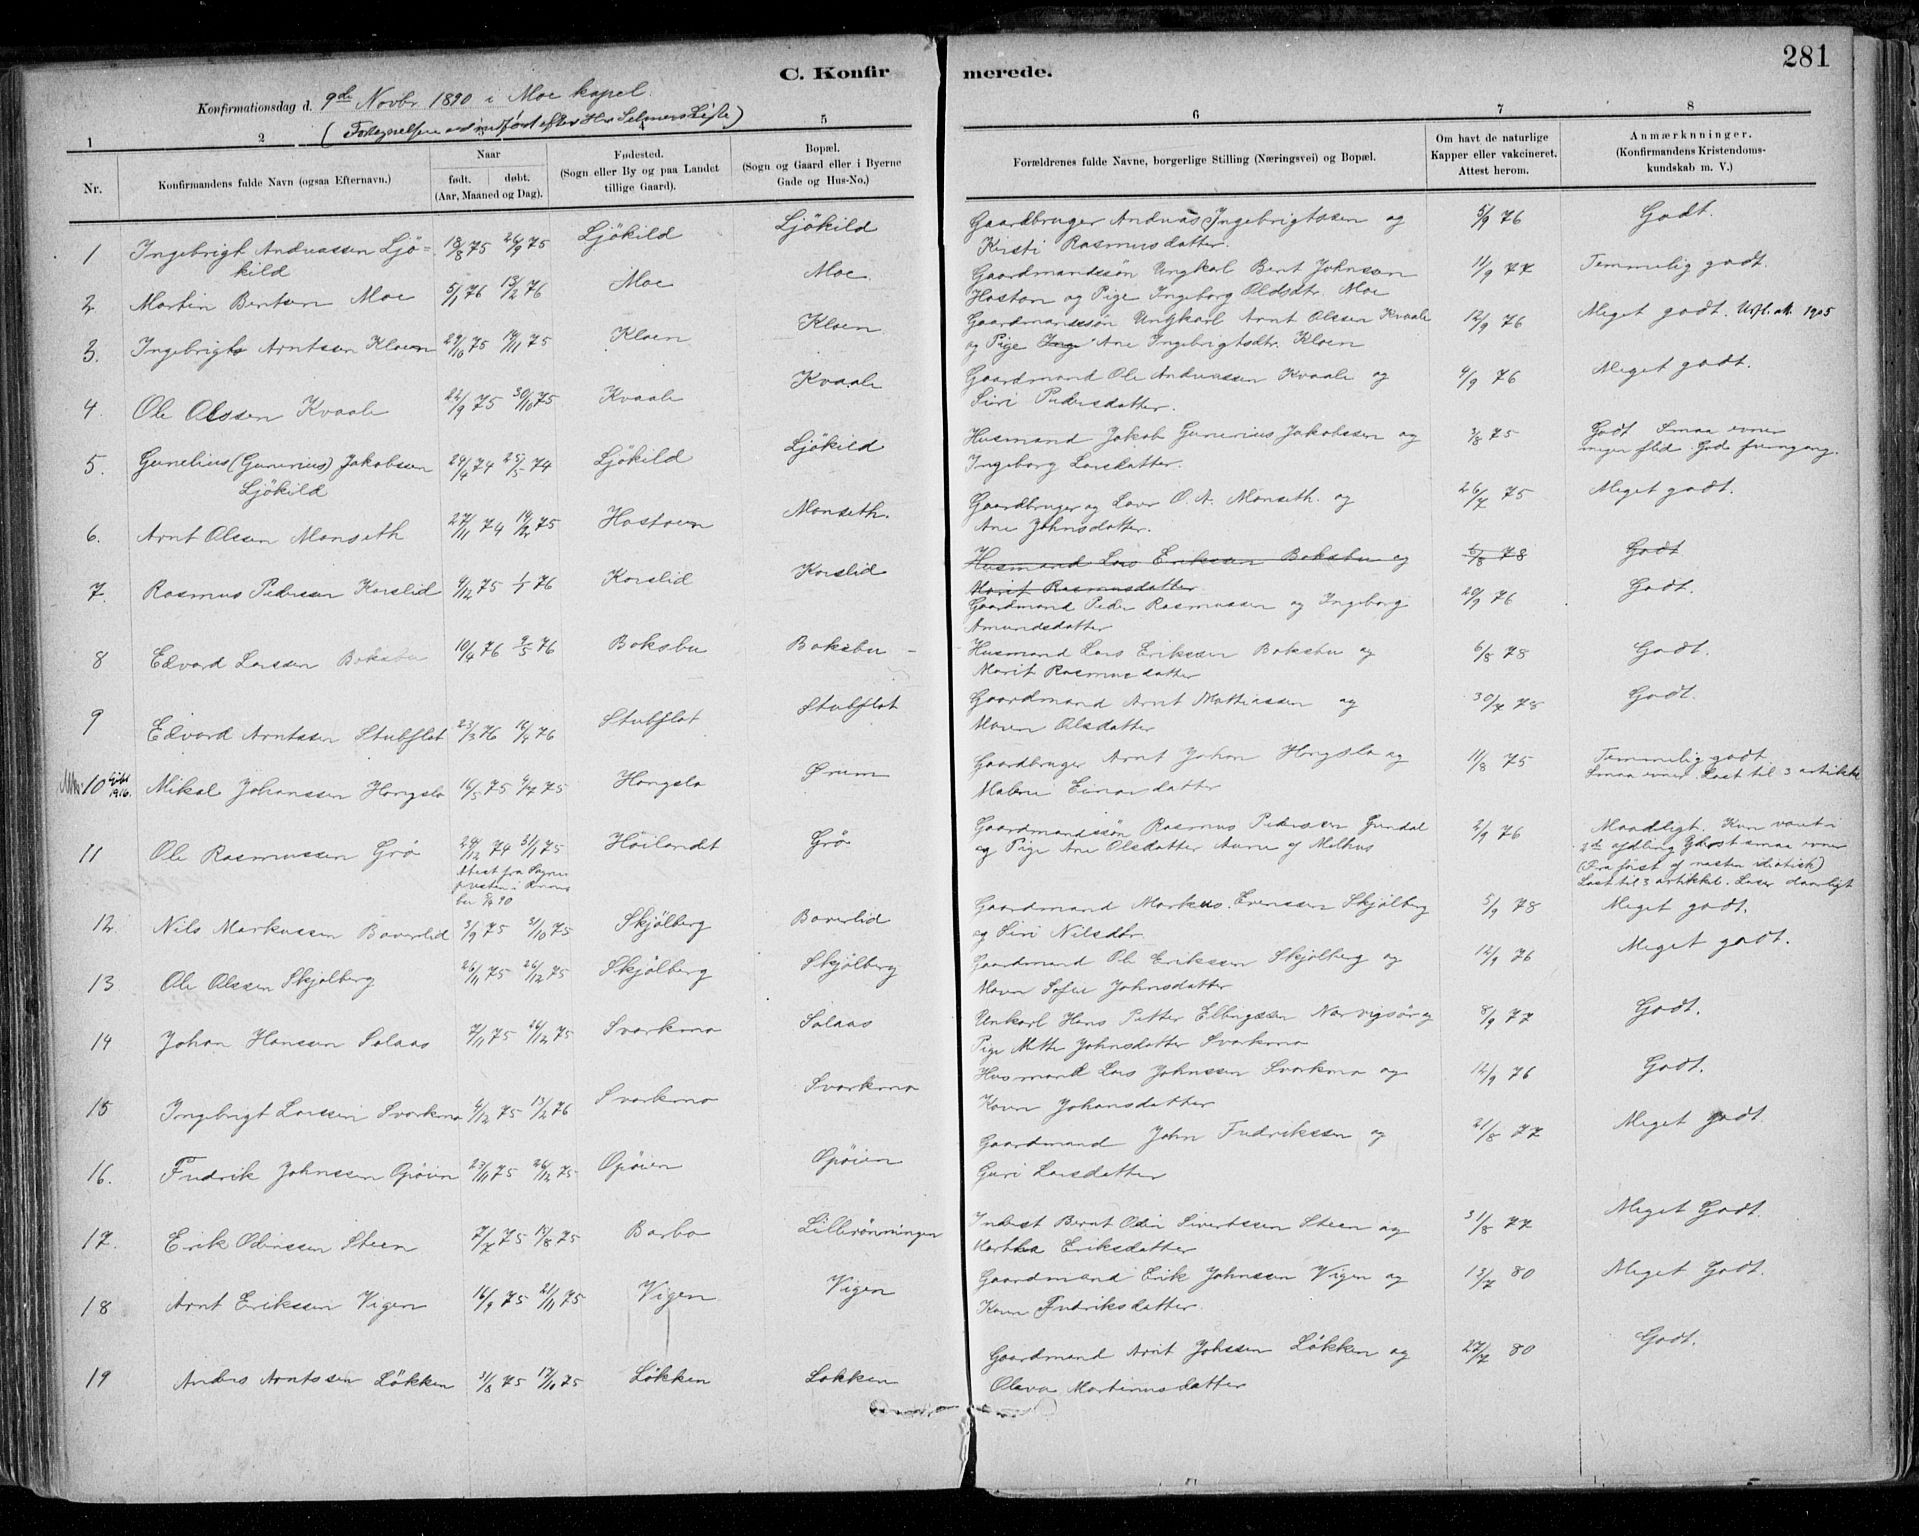 281
C. Konfirmerede.
Konfirmationsdag d. 9de Novbr 1890 i Moe kapel.
(Fortegnelsen indført efter Hr Selmers Liste)
1 2 3 4 5 6 7 8
Nr. Konfirmandens fulde Navn (ogsaa Efternavn.) Naar født. døbt. (Aar, Maaned og Dag). Fødested. (Sogn eller By og paa Landet tillige Gaard). Bopæl. (Sogn og Gaard eller i Byerne Gade og Hus-No.) Forældrenes fulde Navne, borgerlige Stilling (Næringsvei) og Bopæl. Om havt de naturlige Kapper eller vakcineret. Attest herom. Anmærkninger. (Konfirmandens Kristendomskundskab m. V.)
1 Ingebrigt Andreassen Ljökild 18/8 75 26/9 75 Ljökild Ljökild Gaardbruger Andreas Ingebrigtssen og Kirsti Rasmusdatter. 5/9 76 Godt.
2 Martin Bentsen Moe 5/1 76 13/2 76 Moe Moe Gaardmandssön Ungkarl Bent Johnsen Hostoen og Pige Ingeborg Olsdtr. Moe 11/9 77 Temmelig godt.
3. Ingebrigt Arntsen Kloen 29/10 75 19/11 75 Kloen Kloen Gaardmandssön Ungkarl Arnt Olssen Kvaale og Pige Ane Ingebrigtsdtr. Kloen 12/9 76 Meget godt. 1905
4. Ole Olssen Kvaale 22/9 75 30/10 75 Kvaale Kvaale Gaardmand Ole Andreassen Kvaale og Siri Pedersdatter. 4/9 76 Meget godt.
5. Gunelius (Gunerius) Jakobsen Ljökild 29/4 74 25/5 74 Ljökild Ljökild Husmand Jakob Gunerius Jakobssen og Ingeborg Larsdatter. 3/8 75 Godt Smaa evner megen flid. God fremgang.
6. Arnt Olssen Monseth 27/11 74 14/2 75 Hostoen Monseth. Gaardbruger og Lærer O. A. Monseth. og Ane Johnsdatter. 26/7 75 Meget godt.
Husmand Lars Erikssen Boksbu og Marit Rasmusdatter 6/8 78 Godt
7. Rasmus Pedersen Korslid 9/12 75 1/1 76 Korslid Korslid Gaardmand Peder Rasmussen og Ingeborg Amundsdatter 20/9 76 Godt.
8 Edvard Larssen Boksbu 10/4 76 9/5 76 Boksbu Boksbu Husmand Lars Erikssen Boksbu og Marit Rasmusdatter 6/8 78 Godt.
9 Edvard Arntssen Stubflot 23/3 76 16/4 76 Stubflot Stubflot Gaardmand Arnt Mattiassen og Maren Olsdatter 30/7 78 Godt.
10 1916. Mikal Johanssen Hongslo 16/5 75 4/7 75 Hongslo Örum Gaardbruger Arnt Johan Hongslo og Malene Einarsdatter 11/8 75 Temmelig godt Smaa evner. Læst til 3 artikkel
11 Ole Rasmussen Grö 29/12 74 31/1 75 Höilandet Grö Gaardmandssön Rasmus Pederssen Grendal og Pige Ane Olsdatter Aune af Melhus 2/9 76 Maadligt. Kun været i 2de afdling (Fra föist af næsten idiotisk) Læst til 3 artikkel. Læser daarligt
12. Nils Markussen Bæverlid 3/9 75 3/10 75 Skjölberg Bæverlid Gaardmand Markus Evenssen Skjölberg og Siri Nilsdtr. 5/9 78 Meget godt.
13 Ole Olssen Skjölberg 26/11 75 26/12 75 Skjölberg Skjölberg Gaardmand Ole Erikssen Skjölberg og Maren Sofie Johnsdatter 12/9 76 Meget godt.
14 Johan Hanssen Solaas 7/11 75 26/12 75 Svorkmo Solaas Unkarl Hans Petter Ellingssen Narvigsør og Pige Mette Johnsdatter Svorkmo 8/9 77 Godt.
15 Ingebrigt Larssen Svorkmo 4/12 75 13/2 76 Svorkmo Svorkmo Husmand Lars Johnssen Svorkmo og Karen Johansdatter 12/9 76 Godt.
16. Fredrik Johnssen Opöien 23/11 75 26/12 75 Opöien Opöien Gaardmand John Fredrikssen og Guri Larsdatter 21/8 77 Meget godt.
17. Erik Odinssen Steen 7/7 75 15/8 75 Barbo Lillerönningen Inderst Bernt Odin Sivertssen Steen og Martha Eriksdatter 31/8 77 Meget Godt.
18 Arnt Erikssen Vigen 16/9 75 21/11 75 Vigen Vigen Gaardmand Erik Johnssen Vigen og Karen Fredriksdatter. 13/7 80 Meget Godt.
19 Anders Arntssen Lökken 31/8 75 17/10 75 Lökken Lökken Gaardmand Arnt Johssen Lökken og Olava Martinusdatter 27/7 80 Godt.